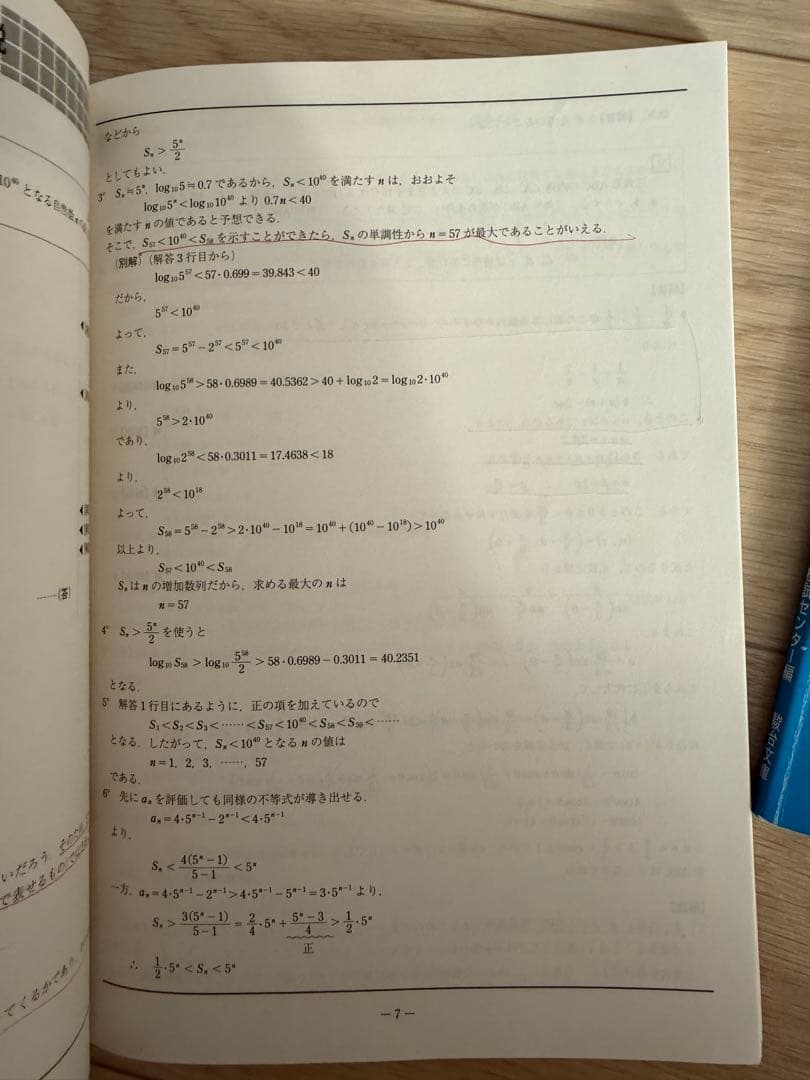 などから
S_n > 5^n/2
としてもよい.
3° S_n≒5^n, log₁₀5≒0.7 であるから, S_n<10^40 を満たす n は, おおよそ
log₁₀5^n<log₁₀10^40 より 0.7n<40
を満たす n の値であると予想できる.
そこで, S₅₇<10^40<S₅₈ を示すことができたら, S_n の単調性から n=57 が最大であることがいえる.
(別解)(解答3行目から)
log₁₀5^57<57·0.699=39.843<40
だから,
5^57<10^40
よって,
S₅₇=5^57−2^57<5^57<10^40
また,
log₁₀5^58>58·0.6989=40.5362>40+log₁₀2=log₁₀2·10^40
より,
5^58>2·10^40
であり,
log₁₀2^58<58·0.3011=17.4638<18
より,
2^58<10^18
よって,
S₅₈=5^58−2^58>2·10^40−10^18=10^40+(10^40−10^18)>10^40
以上より,
S₅₇<10^40<S₅₈
S_n は n の増加数列だから, 求める最大の n は
n=57
4° S_n>5^n/2 を使うと
log₁₀S₅₈>log₁₀ 5^58/2 >58·0.6989−0.3011=40.2351
となる.
5° 解答1行目にあるように, 正の項を加えているので
S₁<S₂<S₃<……<S₅₇<10^40<S₅₈<S₅₉<……
となる. したがって, S_n<10^40 となる n の値は
n=1, 2, 3, ……, 57
である.
6° 先に a_n を評価しても同様の不等式が導き出せる.
a_n=4·5^(n−1)−2^(n−1)<4·5^(n−1)
より,
S_n< 4(5^n−1)/(5−1) <5^n
一方, a_n=4·5^(n−1)−2^(n−1)>4·5^(n−1)−5^(n−1)=3·5^(n−1) より,
S_n> 3(5^n−1)/(5−1) = 2/4·5^n + (5^n−3)/4 > 1/2·5^n
正
∴ 1/2·5^n<S_n<5^n
—7—
となる自然数
……(答)
いだろう.
で表せるもの
てくるかであり,
センター編
駿台文庫